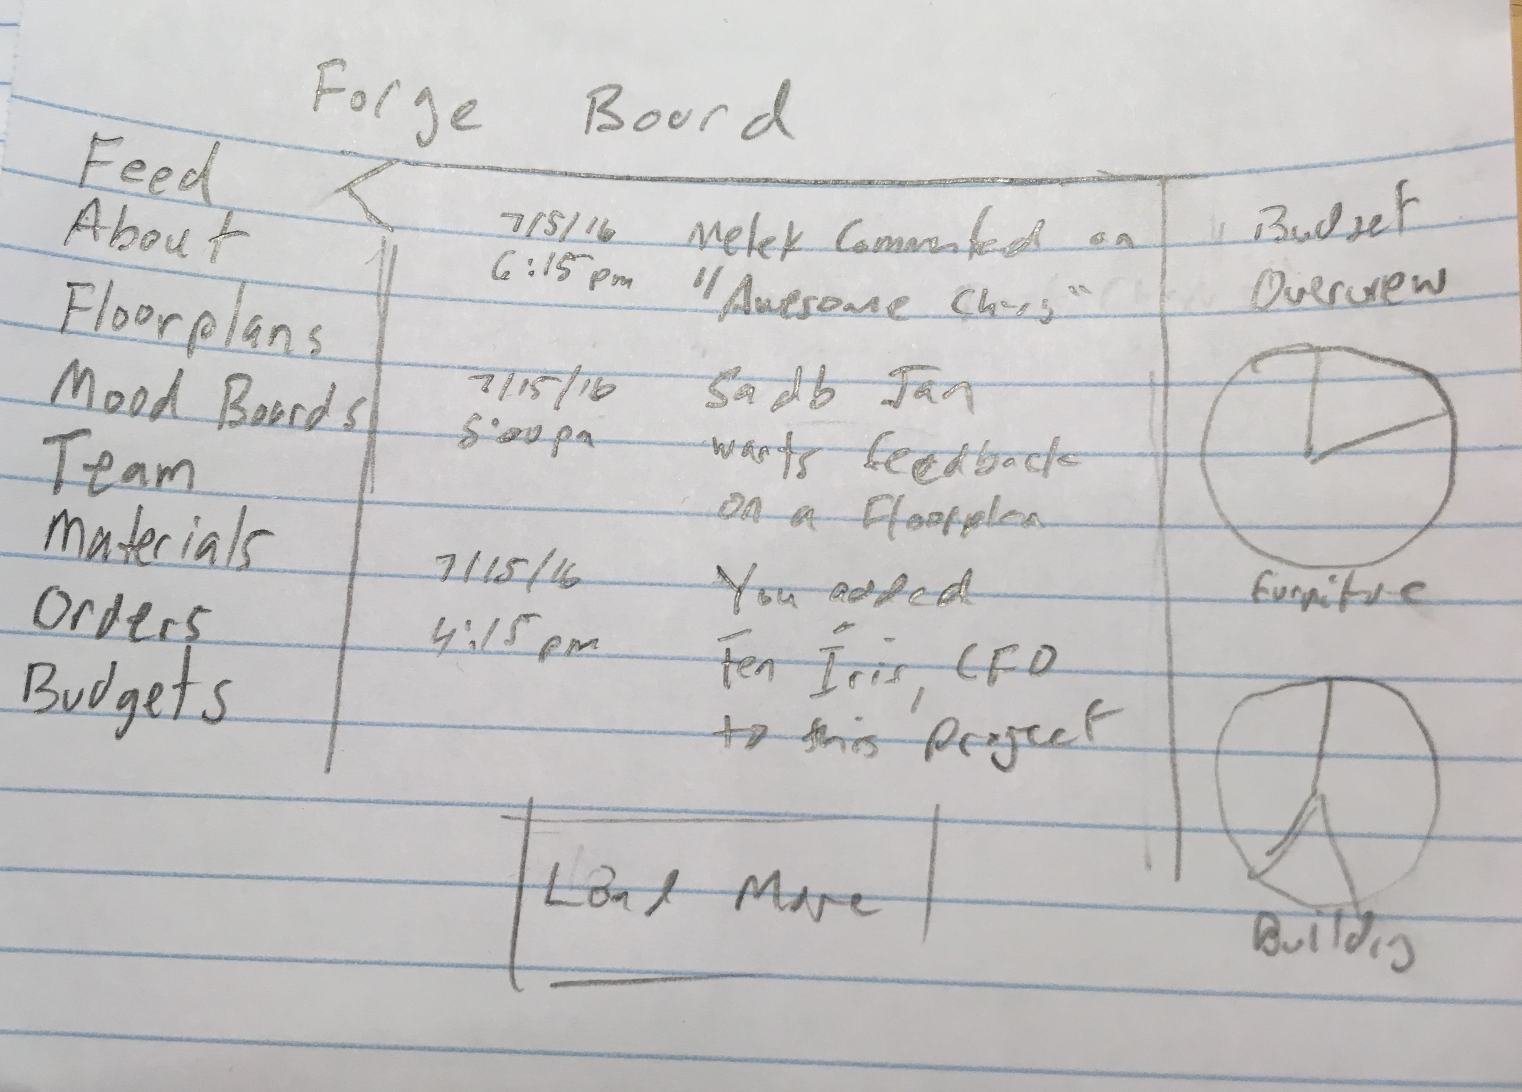 Forge Board
Feed
About
Floorplans
Mood Boards
Team
Materials
Orders
Budgets
7/15/16
6:15pm
Melek Commented on
"Awesome
7/15/16
5:00pm
Sadb Jan
wants feedback
on a Floorplan
7/15/16
4:15pm
You added
Fen Iris, CFO
to this project
Load More
Budget
Overview
Furniture
Building